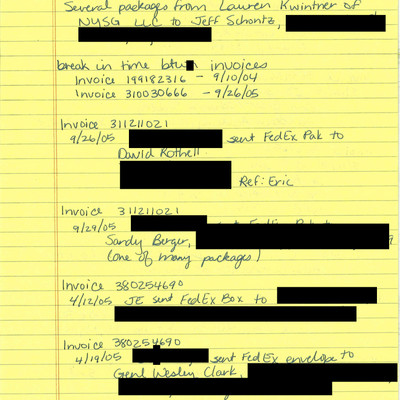 Several packages from Lauren Kwintner of
NYSG LLC to Jeff Schantz,
break in time btwn invoices
Invoice 199182316 - 9/10/04
Invoice 310030666 - 9/26/05
Invoice 311211021
9/26/05 sent FedEx Pak to
David Rothell
Ref: Eric
Invoice 311211021
9/29/05 sent FedEx Pak to
Sandy Berger,
(one of many packages)
Invoice 380254690
4/12/05 JE sent FedEx Box to
Invoice 380254690
4/19/05 sent FedEx envelope to
Genl Wesley Clark,